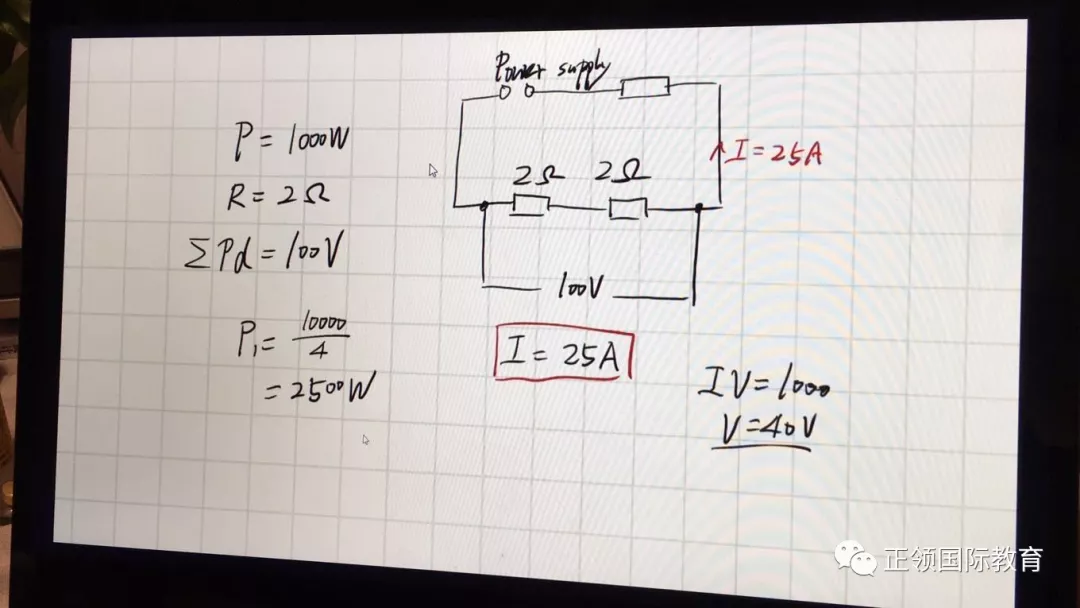 P = 1000W
R = 2Ω
∑Pd = 100V
P₁ = 10000/4
= 2500W
Power supply
I = 25A
2Ω 2Ω
100V
I = 25A
IV = 1000
V = 40V
正领国际教育